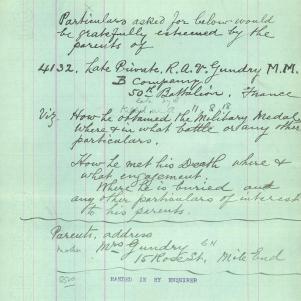 Particulars asked for below would
be gratefully esteemed by the
parents of
4132. Late Private. R. A. V. Gundry M.M.
B Company
50th Battalion. France
11.8.18
Viz. How he obtained the Military Medal
Where & in what battle or any other
particulars.
How he met his Death where &
what engagement.
Where he is buried and
any other particulars of interest
to his parents.
Parents. address
Mother Mrs Gundry
15 Rose St. Mile End
HANDED IN BY ENQUIRER